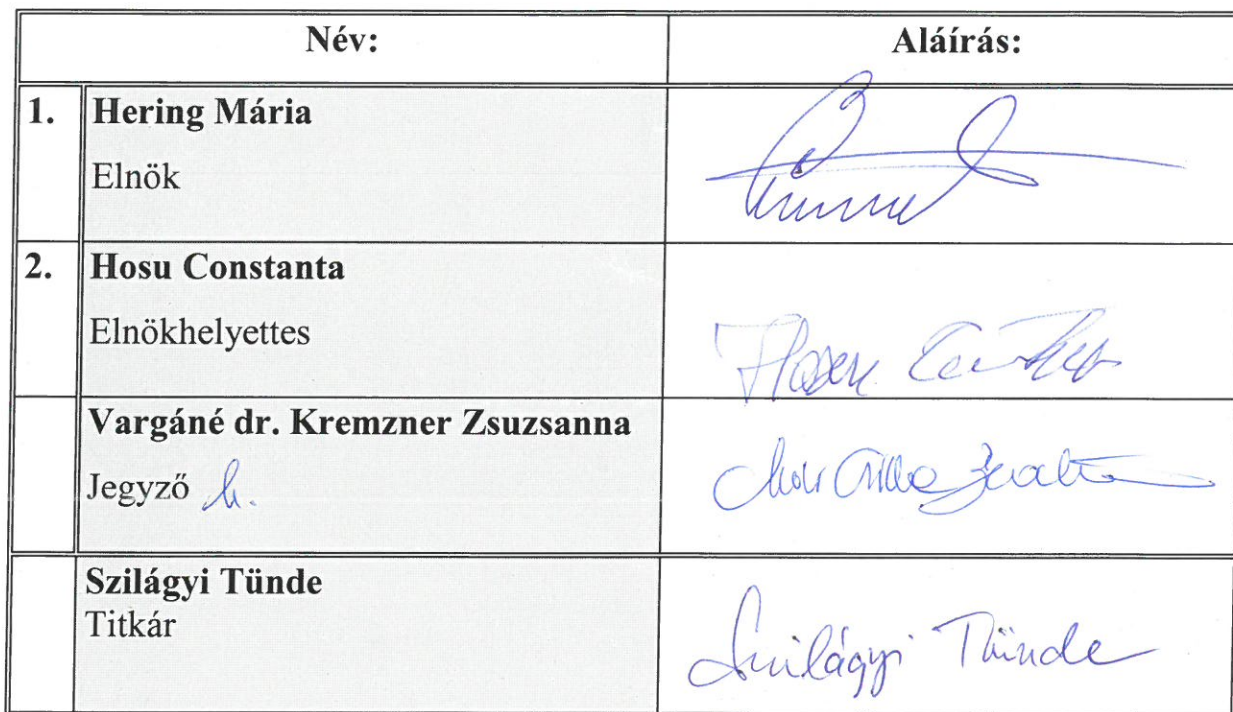 Név: Aláírás:
1. Hering Mária
Elnök
2. Hosu Constanta
Elnökhelyettes
Hosu
Vargáné dr. Kremzner Zsuzsanna
Jegyző h.
Szilágyi Tünde
Titkár
Szilágyi Tünde